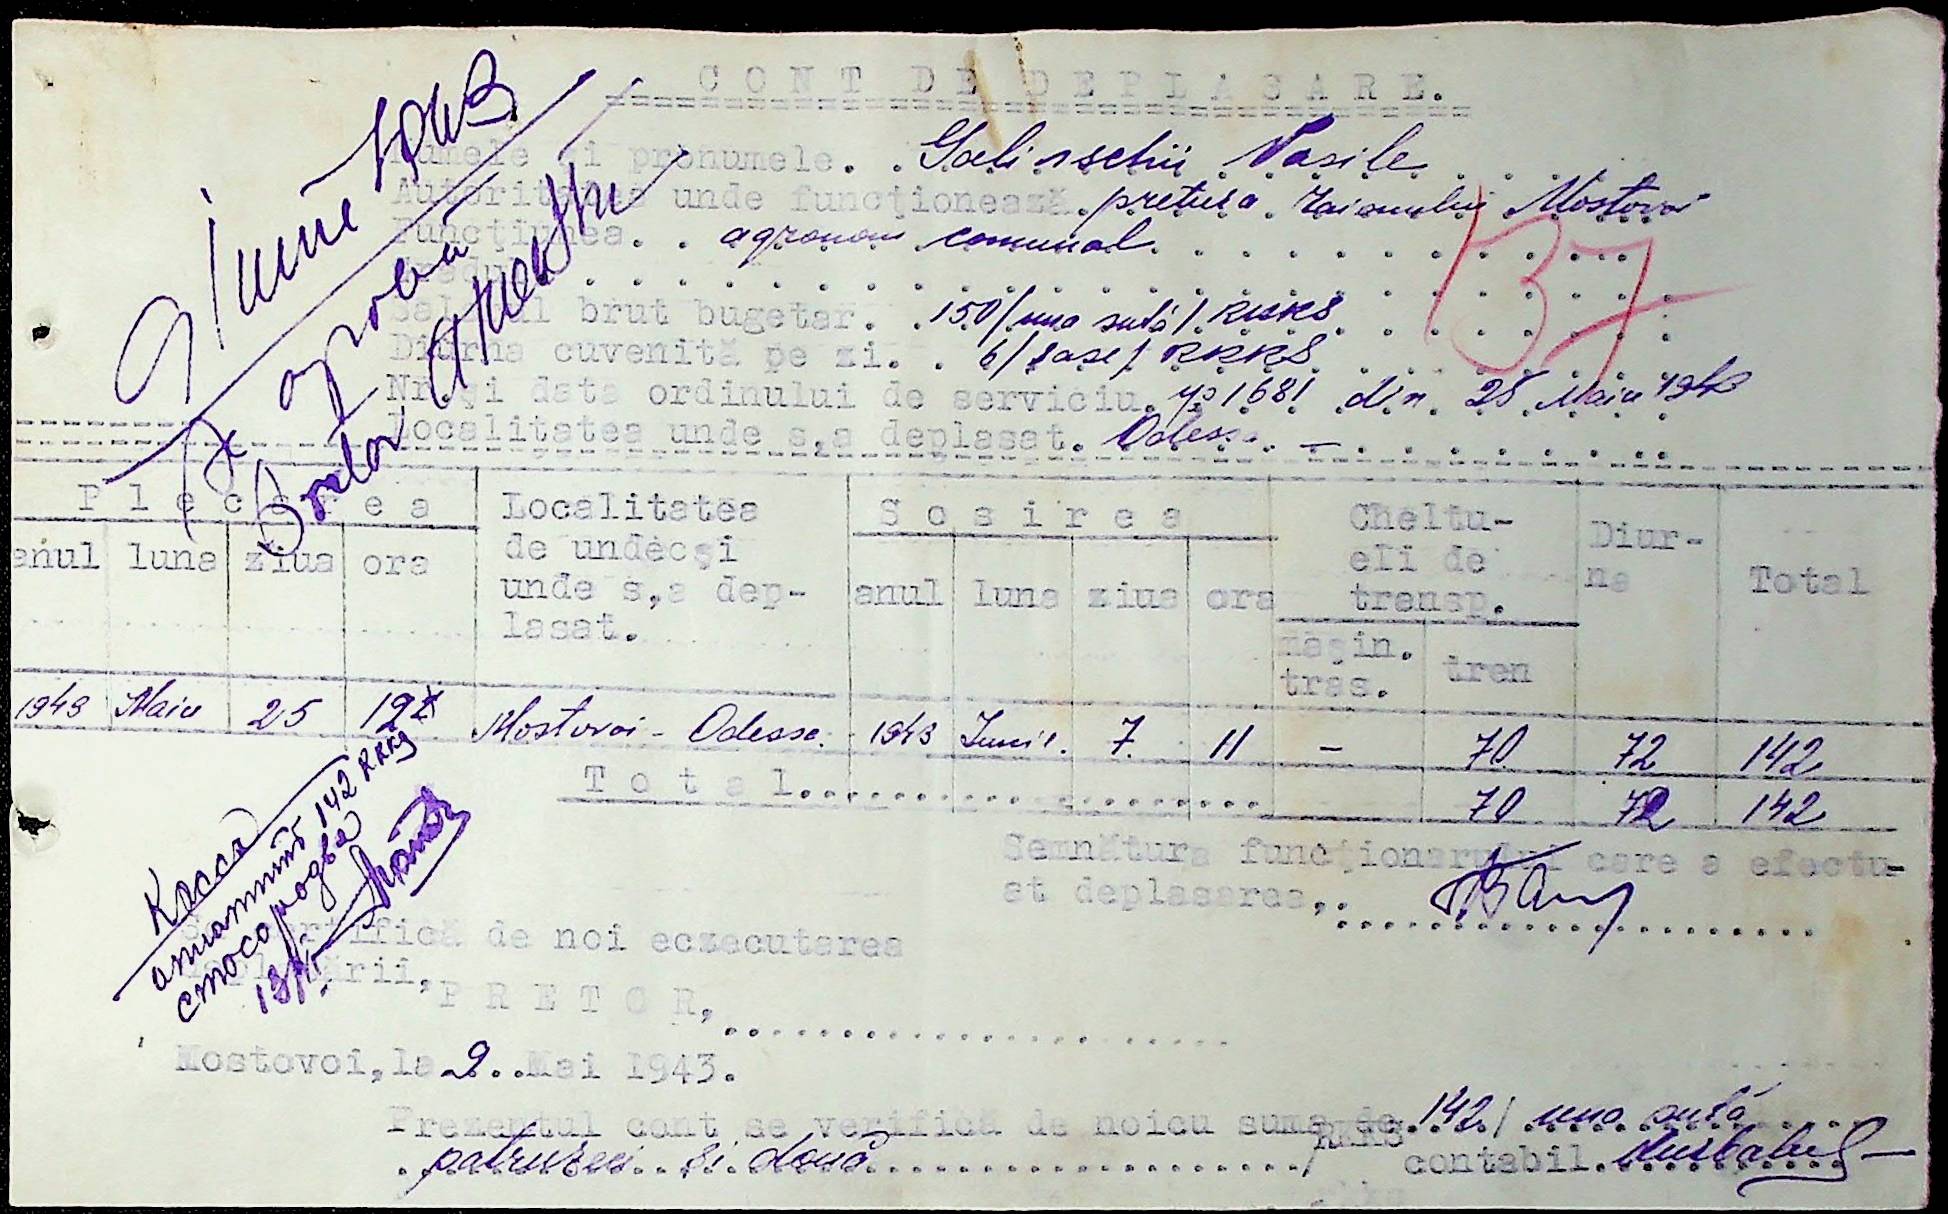 CONT DE DEPLASARE.
Numele și pronumele. . Galinschii Vasile
Autoritatea unde funcționează. pretura Raionului Mostovoi
Funcțiunea. . agronom comunal.
Gradul
Salarul brut bugetar. . 150/una sută/ RKKS
Diurna cuvenită pe zi. . 6/șase/ RKKS
Nr. și data ordinului de serviciu. 1681 din 25 Maiu 1943
Localitatea unde s,a deplasat. Odessa. —
137
Iunie
Se aprobă
Pretor
Plecarea
anul luna ziua ora
Localitatea
de undecși
unde s,a dep-
lasat.
Sosirea
anul luna ziua ora
Cheltu-
eli de
transp.
mașin.
tras.
tren
Diur-
na
Total
1943 Maiu 25 19 Mostovoi - Odessa. 1943 Iunie. 7 11 – 70 72 142
Total. 70 72 142
Semnătura funcționarului care a efectu-
at deplasarea,.
Касса
142 RKKS
сто сорок два
Se certifică de noi eczecutarea
deplasării,
PRETOR,
Mostovoi, la 2. .Mai 1943.
Prezentul cont se verifică de noicu suma de. 142/ una sută
patruzeci și două / RKKS
contabil.